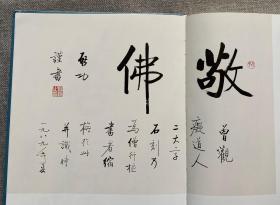 敬佛
曾觀
癡道人
二大字
石刻乃
為僧行極
書者縮
摹於此
并識時
一九八九年夏
啟功
謹書